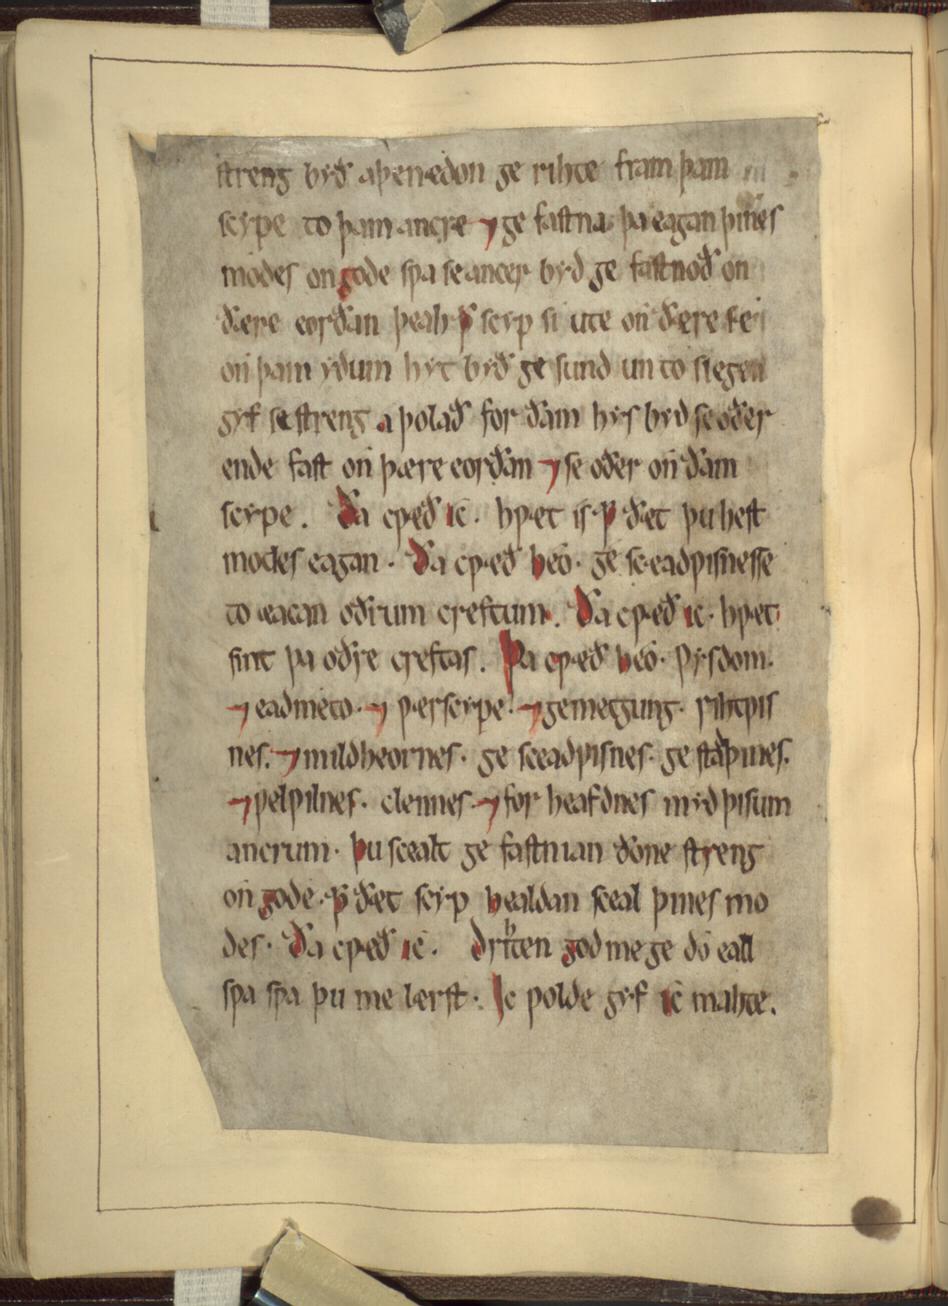 streng byð aþenædon ge rihte fram þam
scype to þam ancre ⁊ ge fastna þa eagan þines
modes on gode swa se ancer byd ge fastnoð on
ðære eorðan þeah þ̄ scyp si ute on ðere se
on þam yðum hyt byð ge sund un to slegen
gyf se streng aþolað for ðam hys byd se oðer
ende fast on þære eorðan ⁊ se oðer on ðam
scype . Ða cwæð ic · hwæt is þ̄ ðæt þu hest
modes eagan · Ða cwæð heo · ge sceadwisnesse
to æacan oðrum creftum . Ða cwæð ic · hwæt
sint þa oðre creftas . Þa cwæð heo · wysdom ·
⁊ eadmeto · ⁊ wærscype · ⁊ gemetgung · rihtwis
nes . ⁊ mildheortnes · ge sceadwisnes · ge stæðþines .
⁊ welwilnes · clennes · ⁊ for heafdnes myd þisum
ancrum · þu scealt ge fastnian ðone streng
on gode · þ̄ ðæt scyp healdan sceal þines mo
des · Ða cwæð ic · drihten god me ge do eall
swa swa þu me lærst · Ic wolde gyf ic mahte .